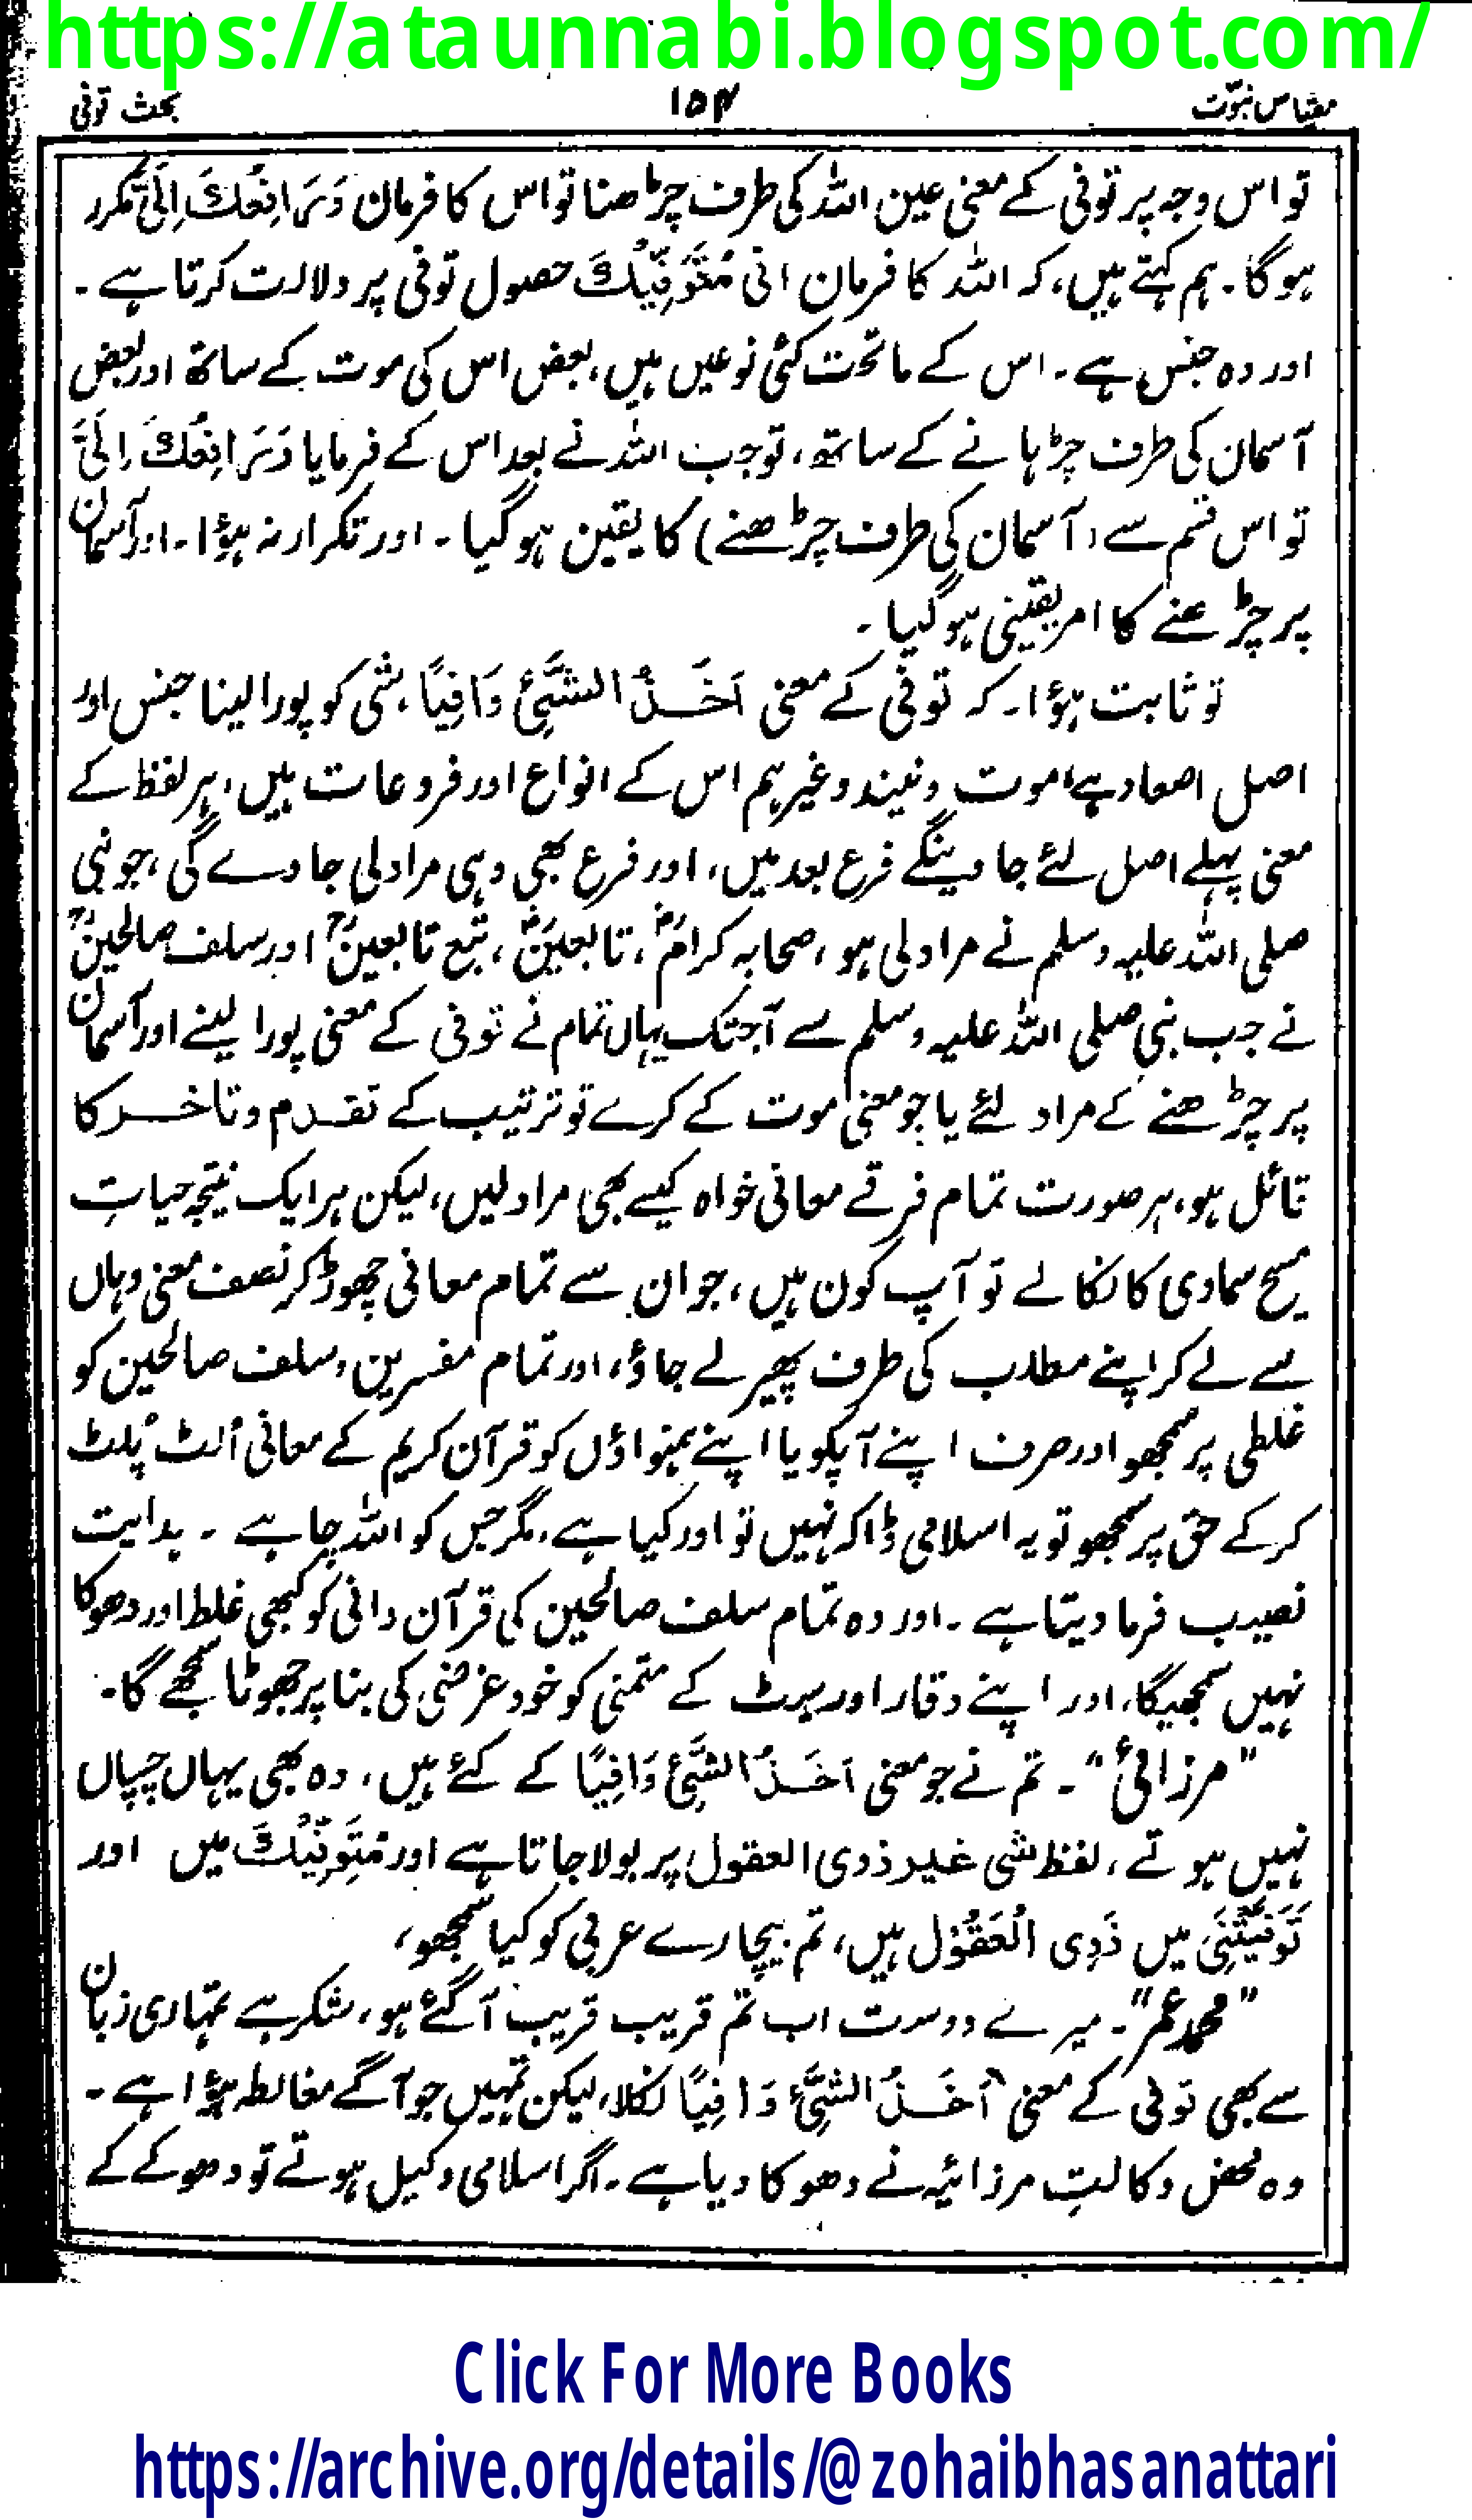 https://ataunnabi.blogspot.com/
مقیاس نبوّت
۱۵۴
بحث توفی
تو اس وجہ پر توفی کے معنی عین اللہ کی طرف چڑھنا تو اس کا فرمان وَرَافِعُكَ اِلَیَّ مکرر
ہو گا۔ ہم کہتے ہیں، کہ اللہ کا فرمان انی مُتَوَفِّيْكَ حصول توفی پر دلالت کرتا ہے۔
اور وہ جنس ہے۔ اس کے ماتحت کئی نوعیں ہیں، بعض اس کی موت کے ساتھ اور بعض
آسمان کی طرف چڑہانے کے ساتھ، تو جب اللہ نے بعد اس کے فرمایا وَرَافِعُكَ اِلَیَّ
تو اس قسم سے (آسمان کی طرف چڑھنے) کا یقین ہو گیا۔ اور تکرار نہ ہوٗا۔ اور آسمان
پر چڑھنے کا امر یقینی ہو گیا۔
تو ثابت ہوٗا۔ کہ توفی کے معنی اَخْذُ الشَّیْئِ وَافِیًا، شی کو پورا لینا جنس اور
اصل اصعاد ہے، موت و نیند وغیرہم اس کے انواع اور فروعات ہیں، ہر لفظ کے
معنی پہلے اصل لئے جاوینگے فرع بعد میں، اور فرع بھی وہی مراد لی جاوے گی، جو نبی
صلی اللہ علیہ وسلم نے مراد لی ہو، صحابہ کرامؓ، تابعینؒ، تبع تابعینؒ اور سلف صالحینؒ
نے جب نبی صلی اللہ علیہ وسلم سے آجتک یہاں تمام نے توفی کے معنی پورا لینے اور آسمان
پر چڑھنے کے مراد لئے یا جو معنی موت کے کرے تو ترتیب کے تقدم و تاخر کا
قائل ہو، ہر صورت تمام فرقے معانی خواہ کیسے بھی مراد لیں، لیکن ہر ایک نتیجہ حیاتِ
مسیح سماوی کا نکالے تو آپ کون ہیں، جو ان سے تمام معانی چھوڑ کر نصف معنی وہاں
سے لے کر اپنے مطلب کی طرف پھیر لے جاؤ، اور تمام مفسرین و سلف صالحین کو
غلطی پر سمجھو اور صرف اپنے آپکو یا اپنے ہمنواؤں کو قرآن کریم کے معانی اُلٹ پُلٹ
کر کے حق پر سمجھو تو یہ اسلامی ڈاکہ نہیں تو اور کیا ہے، مگر جس کو اللہ چاہے ۔ ہدایت
نصیب فرما دیتا ہے۔ اور وہ تمام سلف صالحین کی قرآن دانی کو کبھی غلط اور دھوکا
نہیں سمجھیگا، اور اپنے وقار اور سیرٹ کے متمنی کو خود غرضی کی بنا پر جھوٹا سمجھے گا۔
"مرزائی"۔ تم نے جو معنی اَخْذُ الشَّیْئِ وَافِیًا کے کئے ہیں، وہ بھی یہاں چسپاں
نہیں ہوتے، لفظ شی غیر ذوی العقول پر بولا جاتا ہے اور مُتَوَفِّيْكَ میں اور
تَوَفَّيْتَنِیْ میں ذَوِی الْعَقُوْل ہیں، تم بیچارے عربی کو کیا سمجھو،
"محمد عمر"۔ میرے دوست اب تم قریب قریب آ گئے ہو، شکر ہے تمہاری زبان
سے بھی توفی کے معنی اَخْذُ الشَّیْئِ وَافِیًا نکلا، لیکن تمہیں جو آگے مغالطہ ہوٗا ہے۔
وہ محض وکالتِ مرزائیہ نے دھوکا دیا ہے۔ اگر اسلامی وکیل ہوتے تو دھوکے کے
Click For More Books
https://archive.org/details/@zohaibhasanattari